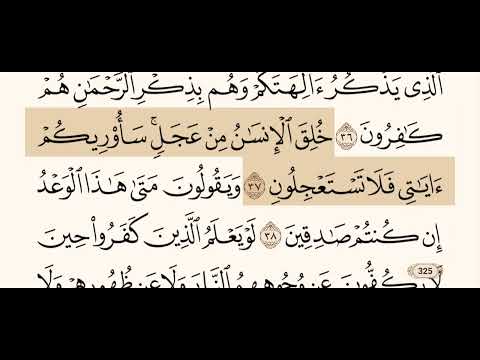 ٱلَّذِى يَذْكُرُ ءَالِهَتَكُمْ وَهُم بِذِكْرِ ٱلرَّحْمَٰنِ هُمْ
كَٰفِرُونَ ٣٦ خُلِقَ ٱلْإِنسَٰنُ مِنْ عَجَلٍ ۚ سَأُو۟رِيكُمْ
ءَايَٰتِى فَلَا تَسْتَعْجِلُونِ ٣٧ وَيَقُولُونَ مَتَىٰ هَٰذَا ٱلْوَعْدُ
إِن كُنتُمْ صَٰدِقِينَ ٣٨ لَوْ يَعْلَمُ ٱلَّذِينَ كَفَرُوا۟ حِينَ
لَا يَكُفُّونَ عَن وُجُوهِهِمُ ٱلنَّارَ وَلَا عَن ظُهُورِهِمْ وَلَا
325